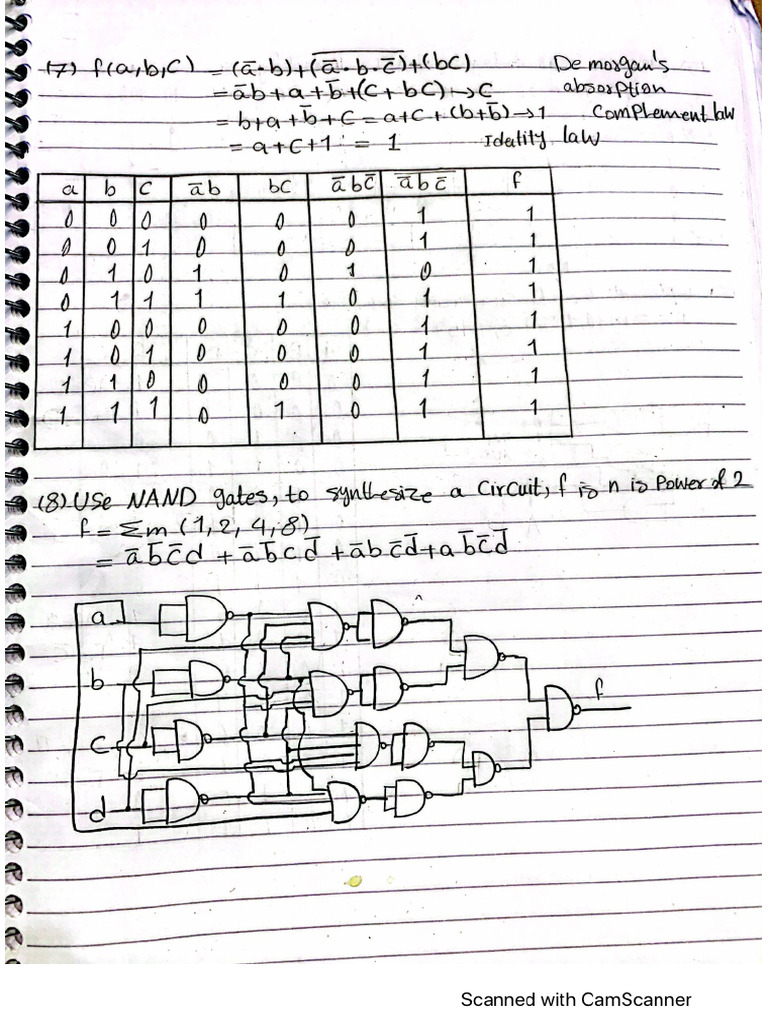 (7) f(a,b,c) = (a̅·b)+(\overline{a̅·b·c̅})+(bc) Demorgan's
= a̅b+a+b̅+(c+bc)→c absorption
= b+a+b̅+c = a+c+(b+b̅)→1 Complement law
= a+c+1 = 1 Idetity law
a b c a̅b bc a̅bc̅ \overline{a̅bc̅} f
0 0 0 0 0 0 1 1
0 0 1 0 0 0 1 1
0 1 0 1 0 1 0 1
0 1 1 1 1 0 1 1
1 0 0 0 0 0 1 1
1 0 1 0 0 0 1 1
1 1 0 0 0 0 1 1
1 1 1 0 1 0 1 1
(8) Use NAND gates, to synthesize a circuit, f is n is power of 2
f = Σm (1,2,4,8)
= a̅b̅c̅d + a̅b̅cd̅ + a̅bc̅d̅+ab̅c̅d̅
a
b
f
c
d
Scanned with CamScanner